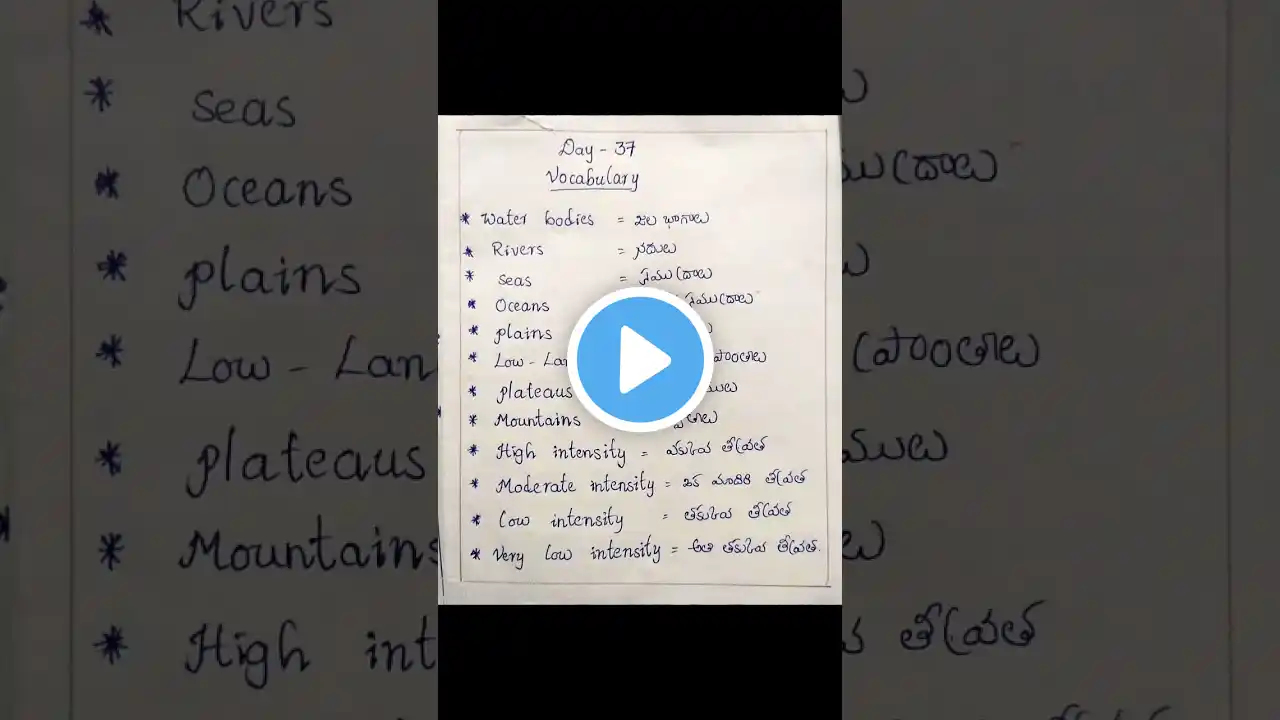 Day - 37
Vocabulary
* Water bodies = జల భాగాలు
* Rivers = నదులు
* seas = సముద్రాలు
* Oceans సముద్రాలు
* plains
* Low - Lan ప్రాంతాలు
* plateaus ములు
* Mountains
* High intensity = ఎక్కువ తీవ్రత
* Moderate intensity = ఒక మాదిరి తీవ్రత
* Low intensity = తక్కువ తీవ్రత
* Very low intensity = అతి తక్కువ తీవ్రత.